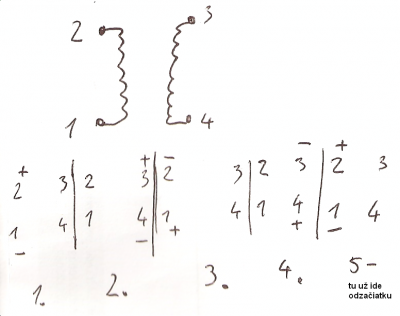 2 3
1 4
+ + − − +
2 3 2 3 2 3 2 3 2 3
1 4 1 4 1 4 1 4 1 4
− − + + −
1. 2. 3. 4. 5-
tu už ide
odzačiatku